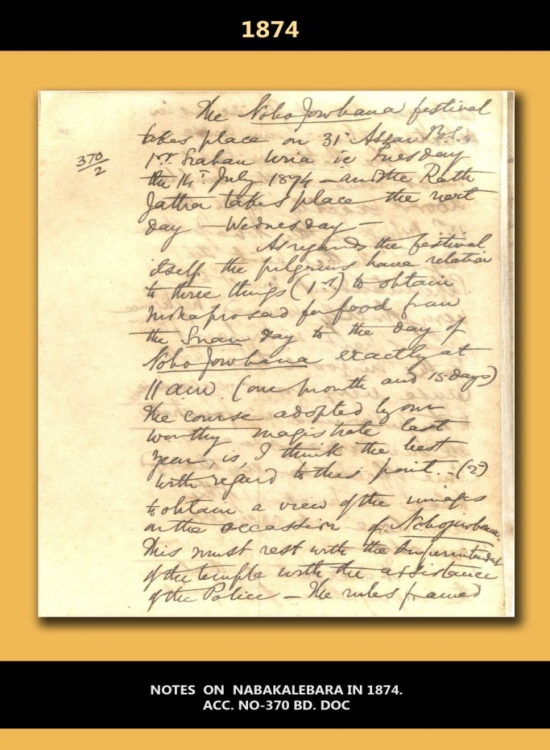 1874
370/2
The Nobo Jowbana festival
takes place on 31st Assar B.S.
1st Sraban Uria ie Tuesday
the 14th July 1874 - and the Rath
Jattra takes place the next
day - Wednesday -
As regards the festival
itself, the pilgrims have relation
to three things (1st) to obtain
Mohaprosad for food from
the Snan day to the day of
Nobo Jowbana exactly at
11 am. (one month and 15 days)
The course adopted by our
worthy magistrate last
year, is, I think the best
with regard to this point. - (2)
to obtain a view of the images
on the occassion of Nobojowbana.
This must rest with the Superintendent
of the temple with the assistance
of the Police - The rules framed
NOTES ON NABAKALEBARA IN 1874.
ACC. NO-370 BD. DOC